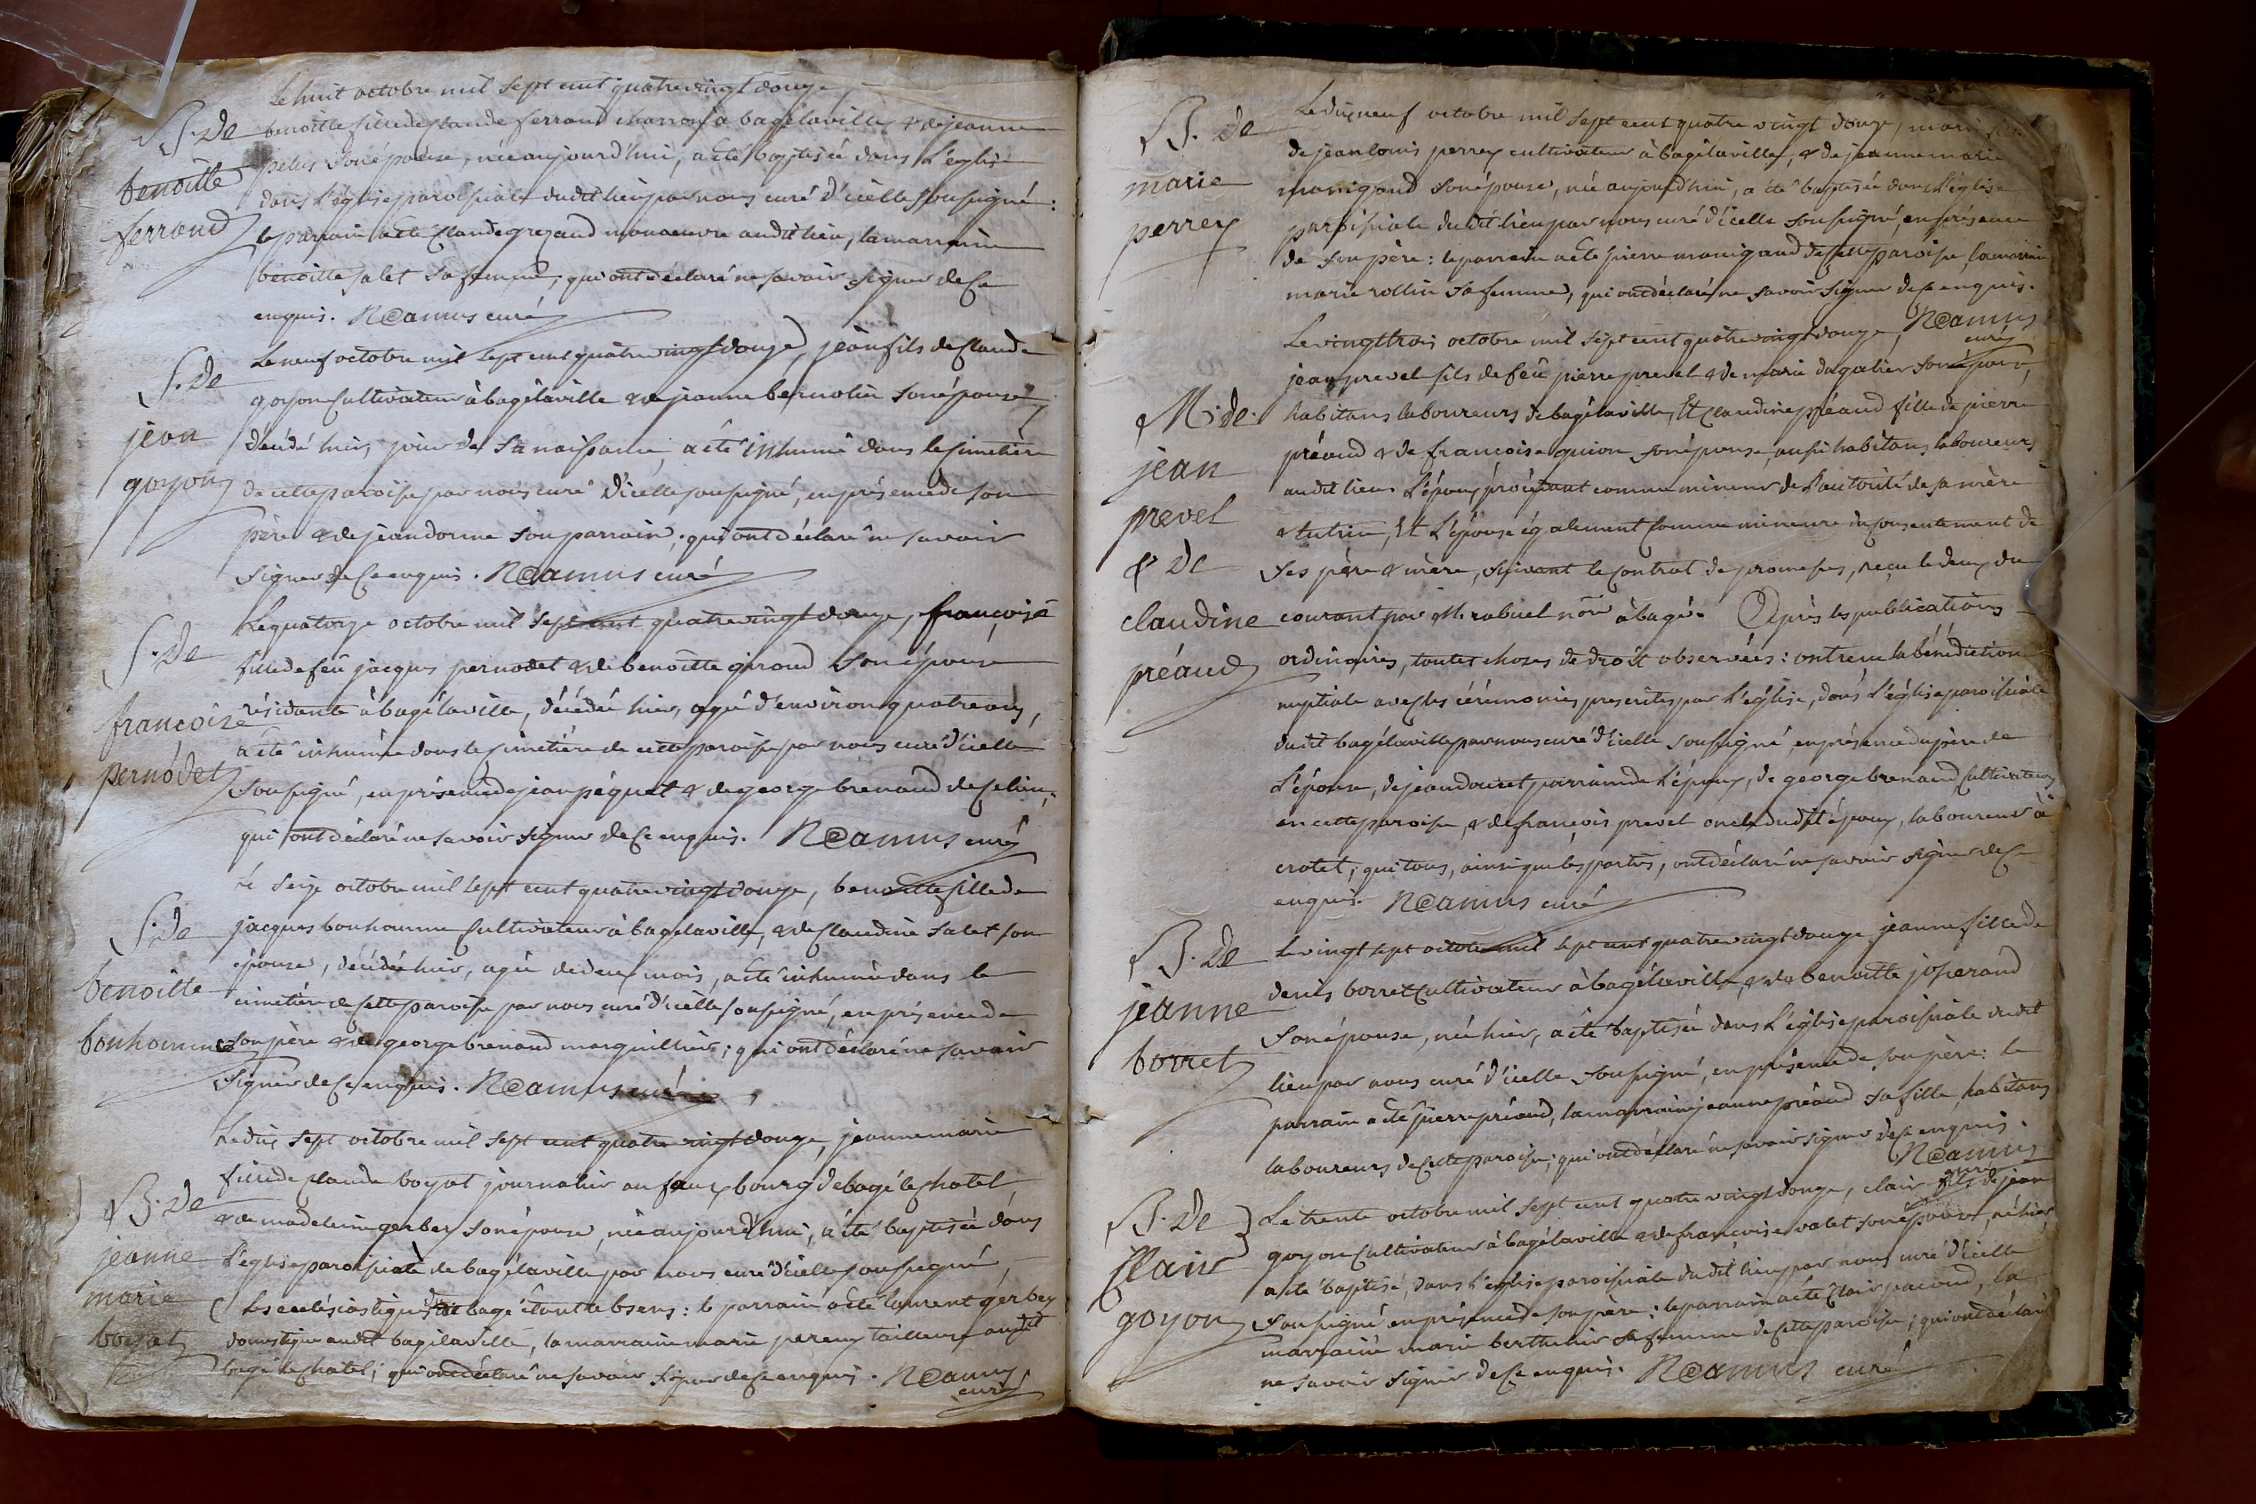 Le huit octobre mil sept cent quatrevingt douze,
B. de
benoitte
ferrand
benoitte fille de claude ferrand charron à bagélaville, & de jeanne
pelus son épouse, née aujourd'hui, a été baptisée dans L'eglise
dans L'église paroissiale dudit lieu par nous curé d'icelle soussigné:
le parrain a été Claude grezaud manoeuvre audit lieu, la marraine
benoitte salet sa femme, qui ont déclaré ne savoir signer de Ce
enquis. NCamus curé
S. de
jean
goyon
Le neuf octobre mil sept cent quatrevingt douze, jean fils de Claude
goyon Cultivateur à bagélaville & de jeanne bernolin son épouse,
décédé hier, jour de sa naissance, a été inhumé dans le Cimetière
de cette paroisse par nous curé d'icelle soussigné, en présence de son
père & de jean dorme son parrain, qui ont déclaré ne savoir
signer de Ce enquis. NCamus curé
S. de
francoise
pernodet
Le quatorze octobre mil sept cent quatrevingt douze, françoise
fille de feû jacques pernodet & de benoitte giraud son épouse
résidante à bagélaville, décédée hier, agée d'environ quatre ans,
a été inhumée dans le Cimetière de cette paroisse par nous curé d'icelle
soussigné, en présence de jean péquet & de george brenaud de Ce lieu,
qui ont déclaré ne savoir signer de Ce enquis. NCamus curé
S. de
benoitte
bonhomme
Le seize octobre mil sept cent quatrevingt douze, benoitte fille de
jacques bonhomme Cultivateur à bagélaville, & de Claudine salet son
épouse, décédée hier, agée de deux mois, a été inhumée dans le
cimetière de Cette paroisse par nous curé d'icelle soussigné, en présence de
son père & de george brenaud marguillier; qui ont déclaré ne savoir
signer de Ce enquis. NCamus curé
B. de
jeanne
marie
boyat
Le dix sept octobre mil sept cent quatre vingt douze, jeanne marie
fille de claude boyat journalier au fauxbourg de bagé le Chatel
& de madeleine gerbey son épouse, née aujourd'hui, a été baptisée dans
L'église paroissiale de bagélaville par nous curé d'icelle soussigné,
( Les ecclésiastiques de bagé étant absens: le parrain a été laurent gerbey
domestique audit bagélaville, la marraine marie perrey tailleuse audit
bagé le Chatel; qui ont déclaré ne savoir signer de Ce enquis. NCamus
curé
B. de
marie
perrey
Le dixneuf octobre mil sept cent quatre vingt douze, marie fille
de jean louis perrey cultivateur à bagélaville, & de jeanne marie
manigand son épouse, née aujourd'hui, a été baptisée dans L'église
paroissiale dudit lieu par nous curé d'icelle soussigné, en présence
de son père: le parrain a été pierre manigand de Cette paroisse, la marraine
marie rollin sa femme, qui ont déclaré ne savoir signer de Ce enquis.
NCamus
curé
M. de
jean
prevel
& de
claudine
préaud
Le vingt trois octobre mil sept cent quatre vingt douze,
jean prevel fils de feû pierre prevel & de marie dagalier son épouse,
habitans laboureurs de bagélaville, Et Claudine préaud fille de pierre
préaud & de françoise guion son épouse, aussi habitans laboureurs
audit lieu. L'époux procédant comme mineur de L'autorité de sa mère
& tutrice, Et L'épouse également Comme mineure du Consentement de
ses père & mère, suivant le Contrat de promesses, reçu le deux du
courant par M. rabuel nore à bagé. Après les publications
ordinaires, toutes choses de droit observées: ont reçu la bénédiction
nuptiale avec les cérémonies prescrites par L'église, dans L'église paroissiale
dudit bagélaville par nous curé d'icelle soussigné, en présence du père de
L'épouse, de jean douret parrain de L'époux, de george brenaud Cultivateur
en cette paroisse, & de francois prevel oncle dudit époux, laboureur à
crotet; qui tous, ainsi que les parties, ont déclaré ne savoir signer de Ce
enquis. NCamus curé
B. de
jeanne
borret
Le vingt sept octobre mil sept cent quatre vingt douze, jeanne fille de
denis borret Cultivateur à bagélaville, & de benoitte josserand
son épouse, née hier, a été baptisée dans L'église paroissiale dudit
lieu par nous curé d'icelle soussigné, en présence de son père: le
parrain a été pierre préaud, la marraine jeanne préaud sa fille, habitans
laboureurs de Cette paroisse; qui ont déclaré ne savoir signer de Ce enquis.
NCamus
curé
B. de
Clair
goyon
Le trente octobre mil sept cent quatre vingt douze, clair fils de jean
goyon Cultivateur à bagélaville & de francoise valet son épouse, né hier
a été baptisé, dans L'église paroissiale dudit lieu par nous curé d'icelle
soussigné en présence de son père: le parrain a été Clair pacoud, la
marraine marie berthelier sa femme de Cette paroisse; qui ont déclaré
ne savoir signer de Ce enquis. NCamus curé